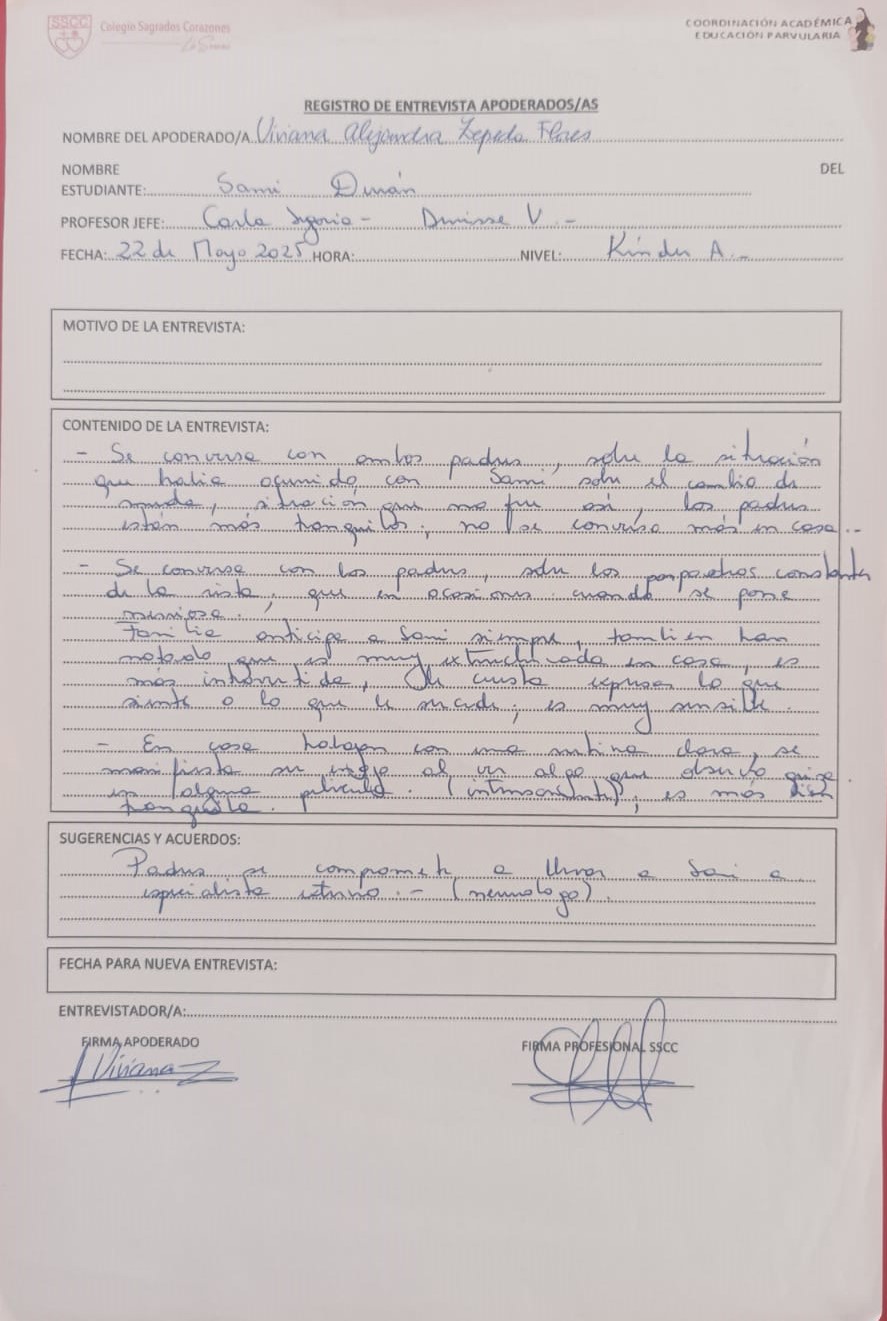 SSCC
Colegio Sagrados Corazones
La Serena
COORDINACIÓN ACADÉMICA
EDUCACIÓN PARVULARIA
REGISTRO DE ENTREVISTA APODERADOS/AS
NOMBRE DEL APODERADO/A Viviana Alejandra Zepeda Flores
NOMBRE DEL
ESTUDIANTE: Sami Durán
PROFESOR JEFE: Carla - Denisse V.-
FECHA: 22 de Mayo 2025 HORA: NIVEL: Kínder A.-
MOTIVO DE LA ENTREVISTA:
CONTENIDO DE LA ENTREVISTA:
- Se conversa con ambos padres, sobre la situación
que había ocurrido con Sami, sobre el cambio de
situación que no fue así, los padres
están más tranquilos, no se conversa más en casa.-
- Se conversa con los padres, sobre los constantes
de la vista, que en ocasiones cuando se pone
nerviosa.
Familia anticipa a Sami siempre, también han
notado que es muy estructurada en casa, es
más introvertida, le cuesta expresar lo que
siente o lo que le sucede, es muy sensible.
- En casa trabajan con una rutina clara, se
manifiesta su enojo al ver algo que
en alguna película. es más bien
tranquila.
SUGERENCIAS Y ACUERDOS:
Padres se comprometen a llevar a Sami a
especialista externo.- (neurologo).
FECHA PARA NUEVA ENTREVISTA:
ENTREVISTADOR/A:
FIRMA APODERADO
FIRMA PROFESIONAL SSCC
Viviana Z